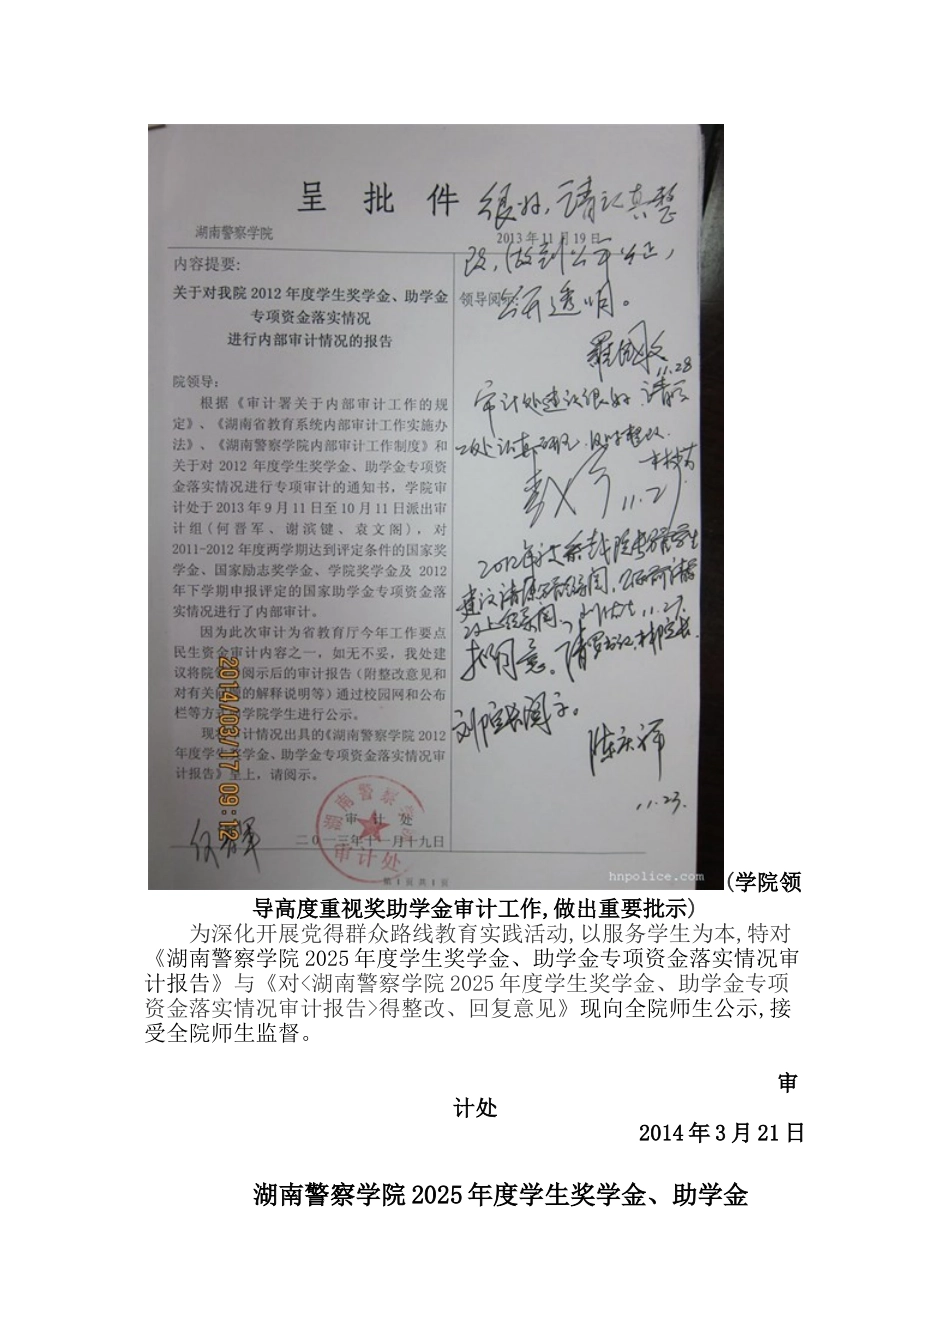 呈批件
很好，请认真整
湖南警察学院
2013年11月19日
改，做到公平公正，
内容提要:
领导阅示:
公开透明。
关于对我院 2012 年度学生奖学金、助学金
专项资金落实情况
进行内部审计情况的报告
11.28
院领导:
审计处建议很好
根据《审计署关于内部审计工作的规
定》、《湖南省教育系统内部审计工作实施办
法》、《湖南警察学院内部审计工作制度》和
关于对 2012 年度学生奖学金、助学金专项资
金落实情况进行专项审计的通知书，学院审
计处于 2013 年 9 月 11 日至 10 月 11 日派出审
计组(何晋军、谢滨键、袁文阁)，对
2011-2012 年度两学期达到评定条件的国家奖
学金、国家励志奖学金、学院奖学金及 2012
年下学期申报评定的国家助学金专项资金落
实情况进行了内部审计。
11.27
因为此次审计为省教育厅今年工作要点
民生资金审计内容之一，如无不妥，我处建
议将院 阅示后的审计报告（附整改意见和
对有关 的解释说明等）通过校园网和公布
栏等方式 学院学生进行公示。
现将 计情况出具的《湖南警察学院 2012
年度 学金、助学金专项资金落实情况审
计报告》呈上，请阅示。
11.27
拟同意。
刘院长阅示。
陈庆祥
11.23.
审计处
二〇一三年十一月十九日
湖南警察学院
审计处
第 1 页 共 1 页
2014/03/17 09:12
hnpolice.com
(学院领
导高度重视奖助学金审计工作,做出重要批示)
为深化开展党得群众路线教育实践活动,以服务学生为本,特对
《湖南警察学院 2025 年度学生奖学金、助学金专项资金落实情况审
计报告》与《对<湖南警察学院 2025 年度学生奖学金、助学金专项
资金落实情况审计报告>得整改、回复意见》现向全院师生公示,接
受全院师生监督。
审
计处
2014 年 3 月 21 日
湖南警察学院 2025 年度学生奖学金、助学金